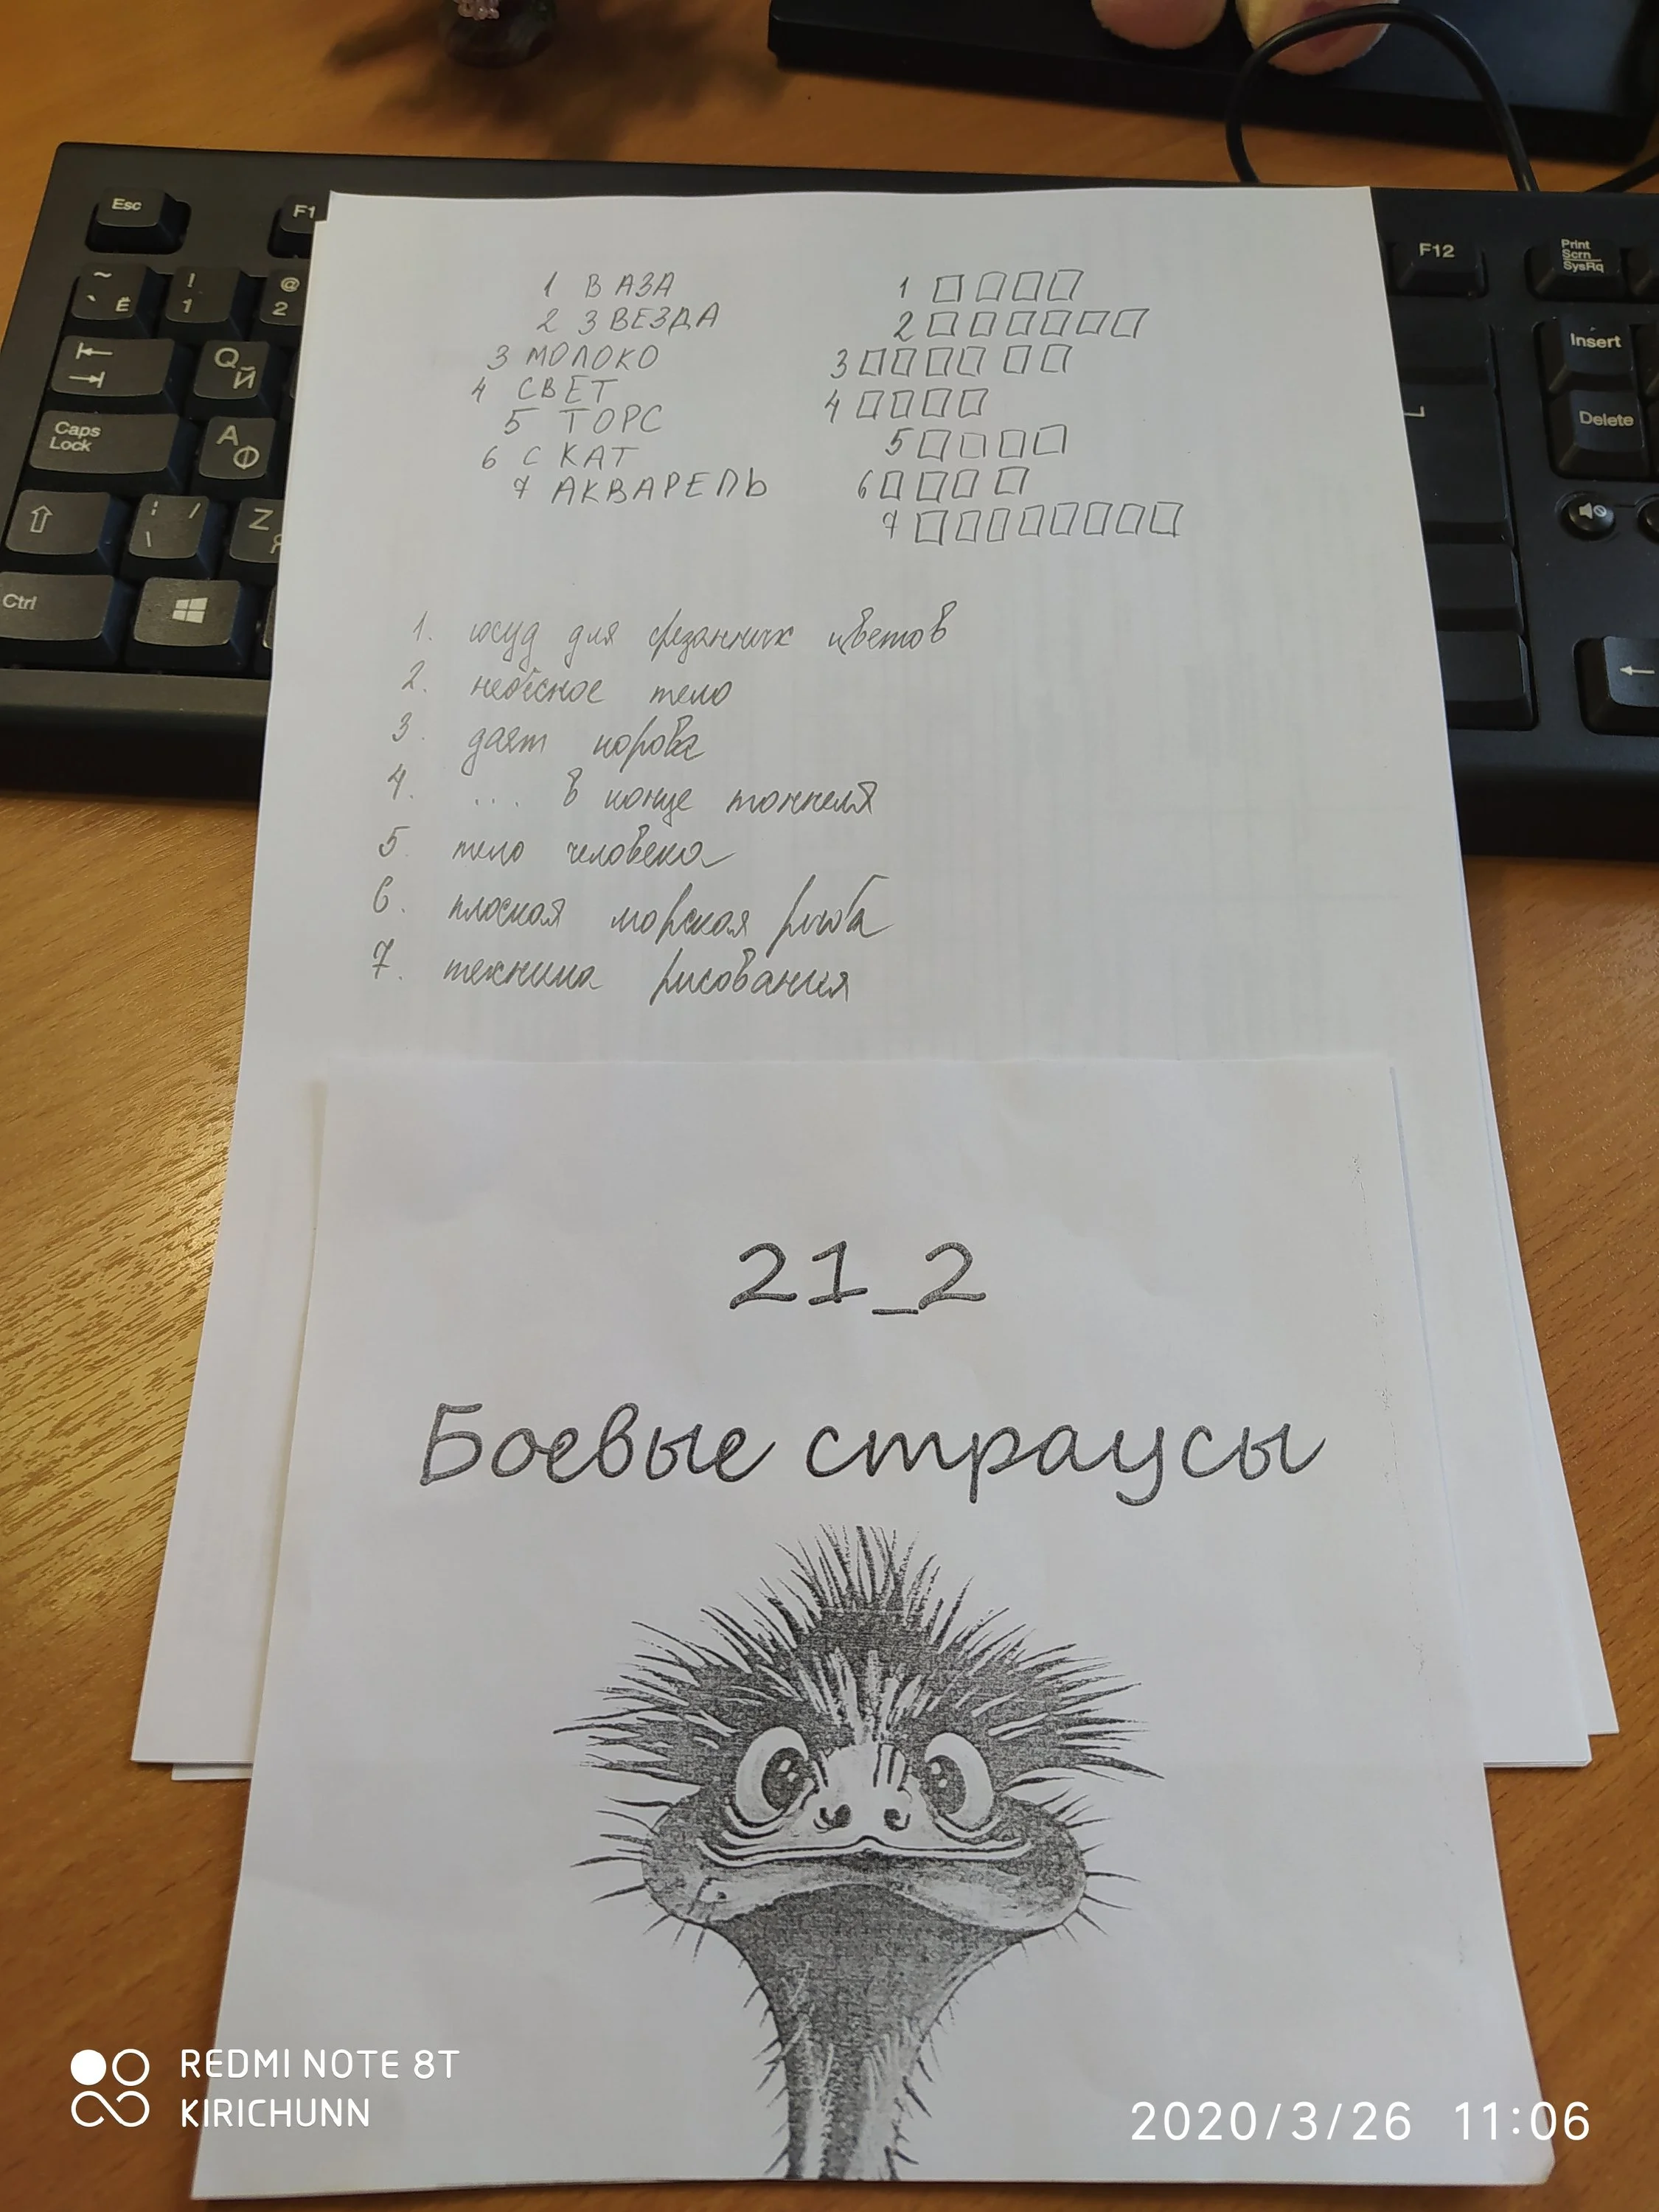 Esc
F1
F12
Print Scrn SysRq
~ ` Ё
! 1
@ 2
Insert
Q Й
Delete
Caps Lock
A Ф
Z Я
Ctrl
1 ВАЗА
2 ЗВЕЗДА
3 МОЛОКО
4 СВЕТ
5 ТОРС
6 СКАТ
7 АКВАРЕЛЬ
1 □□□□
2 □□□□□□
3 □□□□□□
4 □□□□
5 □□□□
6 □□□□
7 □□□□□□□□
1. сосуд для срезанных цветов
2. небесное тело
3. даят корова
4. ... в конце тоннеля
5. тело человека
6. плоская морская рыба
7. техника рисования
21_2
Боевые страусы
REDMI NOTE 8T
KIRICHUNN
2020/3/26 11:06